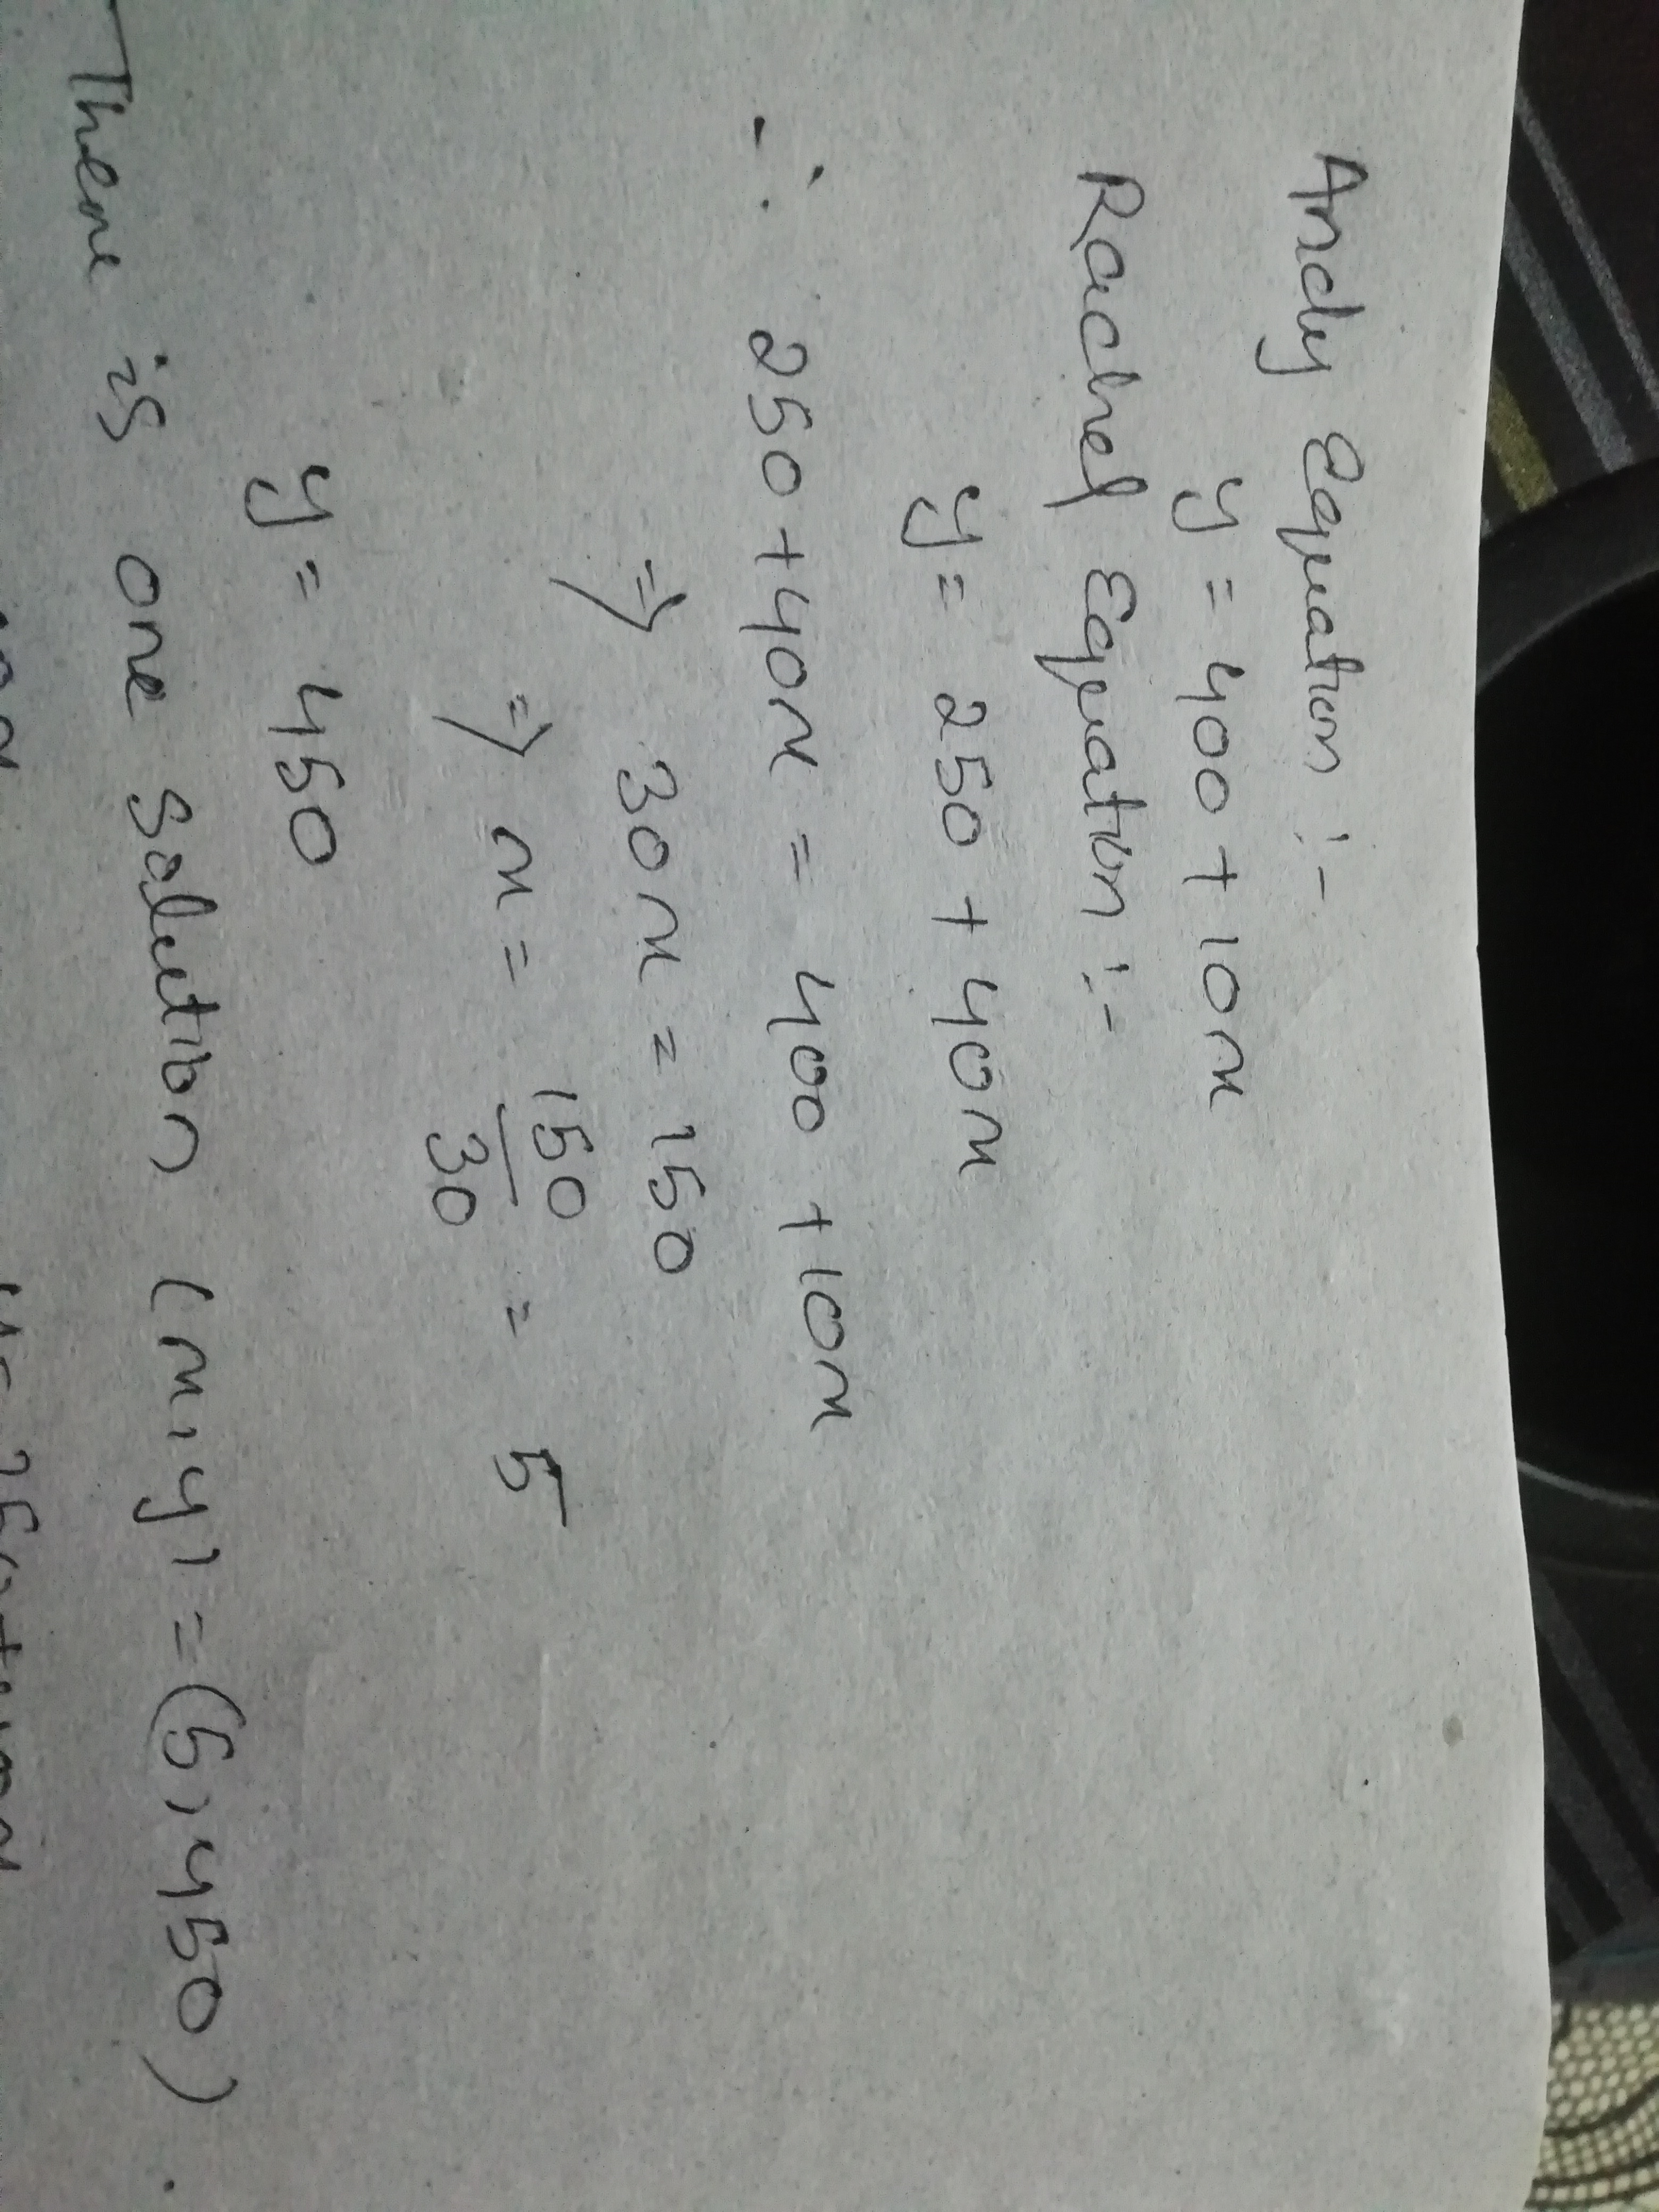 Andy Equation :-
y = 400 + 10x
Rachel Equation :-
y = 250 + 40x
∴ 250 + 40x = 400 + 10x
⇒ 30x = 150
⇒ x = 150/30 = 5
y = 450
There is one solution (x, y) = (5, 450).